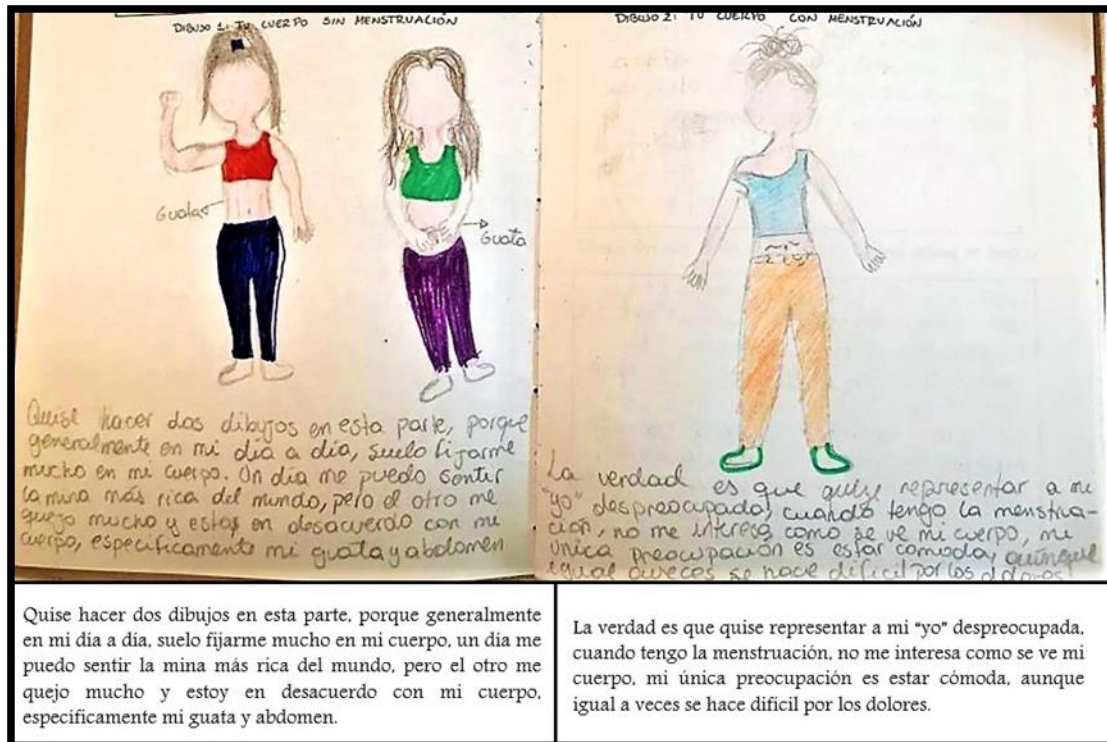 DIBUJO 1: TU CUERPO SIN MENSTRUACIÓN
Guata
Guata
Quise hacer dos dibujos en esta parte, porque
generalmente en mi día a día, suelo fijarme
mucho en mi cuerpo. Un día me puedo sentir
la mina más rica del mundo, pero el otro me
quejo mucho y estoy en desacuerdo con mi
cuerpo, específicamente mi guata y abdomen
DIBUJO 2: TU CUERPO CON MENSTRUACIÓN
La verdad es que quise representar a mi
"yo" despreocupada, cuando tengo la menstrua-
ción, no me interesa como se ve mi cuerpo, mi
única preocupación es estar comoda, aunque
igual aveces se hace dificil por los dolores
Quise hacer dos dibujos en esta parte, porque generalmente
en mi día a día, suelo fijarme mucho en mi cuerpo, un día me
puedo sentir la mina más rica del mundo, pero el otro me
quejo mucho y estoy en desacuerdo con mi cuerpo,
específicamente mi guata y abdomen.
La verdad es que quise representar a mi “yo” despreocupada,
cuando tengo la menstruación, no me interesa como se ve mi
cuerpo, mi única preocupación es estar cómoda, aunque
igual a veces se hace dificil por los dolores.